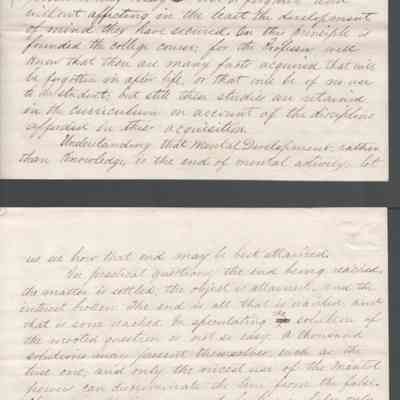 without affecting in the least the development
of mind they have secured. On this principle is
founded the college course; for the Professor well
know that there are many facts acquired that will
be forgotten in after life, or that will be of no use
to the student; but still these studies are retained
in the curriculum on account of the discipline
afforded in their acquisition.
Understanding that Mental Development, rather
than Knowledge is the end of mental activity, let
us see how that end may be best attained.
In practical questions, the end being reached,
the matter is settled, the object is attained, and the
interest broken. The end is all that is wanted, and
that is soon reached. In speculating the solution of
the mooted question is not so easy. A thousand
solutions may present themselves, each as the
true one, and only the nicest use of the Mental
powers can discriminate the true from the false.